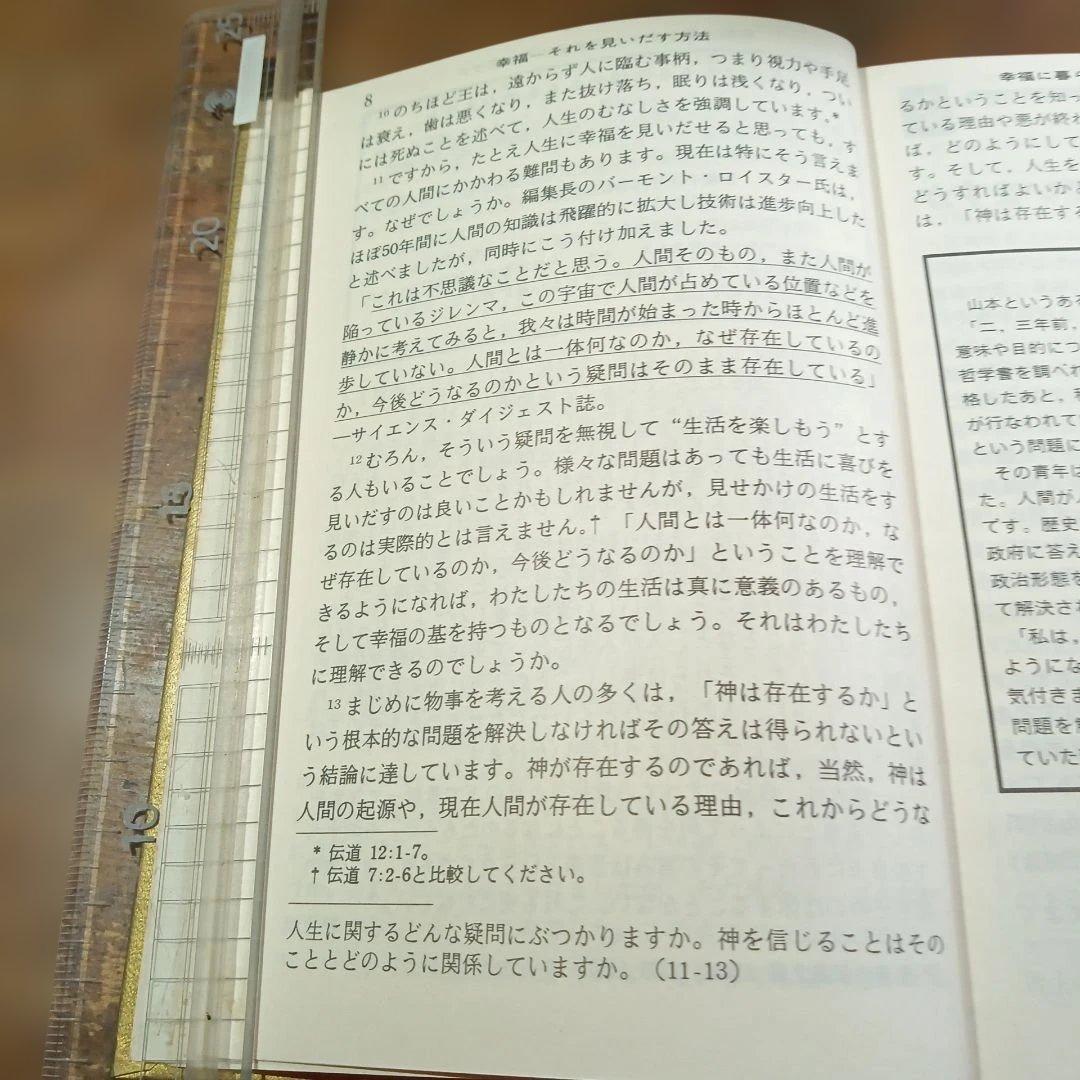 幸福—それを見いだす方法
8
10 のちほど王は，遠からず人に臨む事柄，つまり視力や手足
は衰え，歯は悪くなり，また抜け落ち，眠りは浅くなり，つい
には死ぬことを述べて，人生のむなしさを強調しています。*
11 ですから，たとえ人生に幸福を見いだせると思っても，す
べての人間にかかわる難問もあります。現在は特にそう言えま
す。なぜでしょうか。編集長のバーモント・ロイスター氏は，
ほぼ50年間に人間の知識は飛躍的に拡大し技術は進歩向上した
と述べましたが，同時にこう付け加えました。
「これは不思議なことだと思う。人間そのもの，また人間が
陥っているジレンマ，この宇宙で人間が占めている位置などを
静かに考えてみると，我々は時間が始まった時からほとんど進
歩していない。人間とは一体何なのか，なぜ存在しているの
か，今後どうなるのかという疑問はそのまま存在している」
—サイエンス・ダイジェスト誌。
12 むろん，そういう疑問を無視して“生活を楽しもう”とす
る人もいることでしょう。様々な問題はあっても生活に喜びを
見いだすのは良いことかもしれませんが，見せかけの生活をす
るのは実際的とは言えません。†「人間とは一体何なのか，な
ぜ存在しているのか，今後どうなるのか」ということを理解で
きるようになれば，わたしたちの生活は真に意義のあるもの，
そして幸福の基を持つものとなるでしょう。それはわたしたち
に理解できるのでしょうか。
13 まじめに物事を考える人の多くは，「神は存在するか」と
いう根本的な問題を解決しなければその答えは得られないとい
う結論に達しています。神が存在するのであれば，当然，神は
人間の起源や，現在人間が存在している理由，これからどうな
* 伝道 12:1-7。
† 伝道 7:2-6と比較してください。
人生に関するどんな疑問にぶつかりますか。神を信じることはその
こととどのように関係していますか。（11-13）
幸福に暮
るかということを知っ
ている理由や悪が終わ
ば，どのようにして
す。そして，人生を
どうすればよいか
は，「神は存在する
山本というある
「二，三年前，
意味や目的につ
哲学書を調べ
格したあと，
が行なわれて
という問題に
その青年は
た。人間が
です。歴史
政府に答え
政治形態を
て解決され
「私は，
ようにな
気付きま
問題を
ていた
25
20
15
10